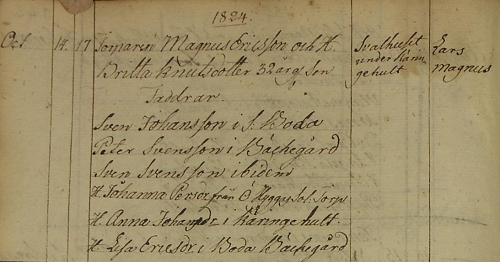 1824.
Oct 14. 17 Tomaren Magnus Ericsson och H. Svalhuset Lars
Britta Knutsdotter 32 årg Son under Kärin Magnus
Faddrar. gehult
Sven Johansson i S. Boda
Peter Svensson i Bäckegård
Sven Svensson ibidem
H. Johanna Persdr från
H. Anna Johansdr i Käringehult.
H. Lisa Ericsdr i Boda Bäckegård